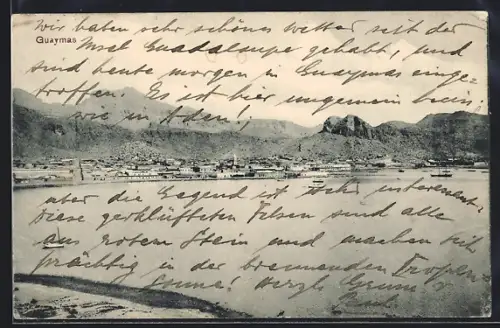 Wir haben sehr schönes Wetter seit der
Guaymas
Insel Guadaloupe gehabt, und
sind heute morgen in Guaymas einge-
troffen. Es ist hier ungemein heiss,
wie in Aden,
aber die Gegend ist interessant,
diese zerklüfteten Felsen sind alle
aus rotem Stein und machen sich
prächtig in der brennenden Tropen-
sonne! Herzl. Grüsse